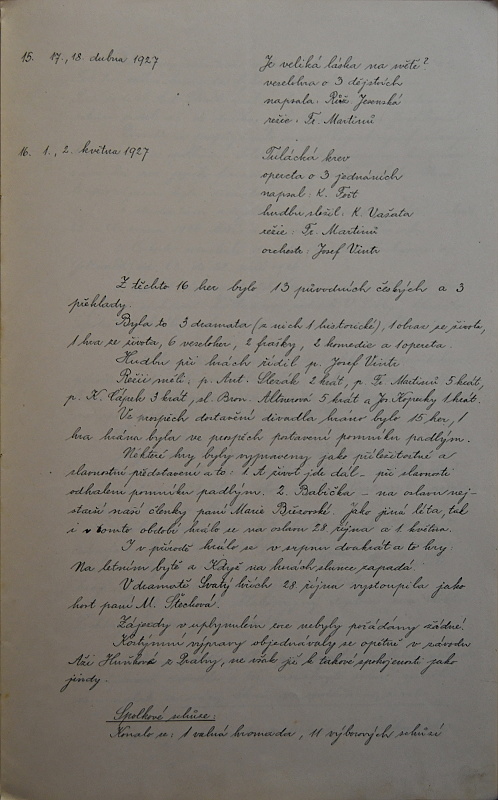 15. 17., 18. dubna 1927 Je veliká láska na světě?
veselohra o 3 dějstvích
napsala: Růž. Jesenská
režie: Fr. Martinů
16. 1., 2. května 1927 Tulácká krev
opereta o 3 jednáních
napsal: K. Fořt
hudbu složil: K. Vašata
režie: Fr. Martinů
orchestr: Josef Vintr
Z těchto 16 her bylo 13 původních českých a 3
překlady.
Byla to 3 dramata (z nich 1 historické), 1 obraz ze života,
1 hra ze života, 6 veseloher, 2 frašky, 2 komedie a 1 opereta.
Hudbu při hrách řídil p. Josef Vintr
Režii měli: p. Ant. Slezák 2 krát, p. Fr. Martinů 5 krát,
p. K. Čápek 3 krát, sl. Bron. Altnerová 5 krát a Jos. Kopecký 1 krát.
Ve prospěch dostavění divadla hráno bylo 15 her, 1
hra hrána byla ve prospěch postavení pomníku padlým.
Některé hry byly vypraveny jako příležitostné a
slavnostní představení a to: 1. A život jde dál – při slavnosti
odhalení pomníku padlým. 2. Babička – na oslavu nej-
starší naší členky paní Marie Bezovské. Jako jiná léta, tak
i v tomto období hrálo se na oslavu 28. října a 1. května.
I v přírodě hrálo se v srpnu dvakrát a to hry:
Na letním bytě a Když na horách slunce zapadá.
V dramatě Svatý hřích 28. října vystoupila jako
host paní M. Štechová.
Zájezdy v uplynulém roce nebyly pořádány žádné!
Kostýmní výpravy objednávaly se opětně v závodu
z Prahy, ne však již k takové spokojenosti jako
jindy.
Spolkové schůze:
Konalo se: 1 valná hromada, 11 výborových schůzí